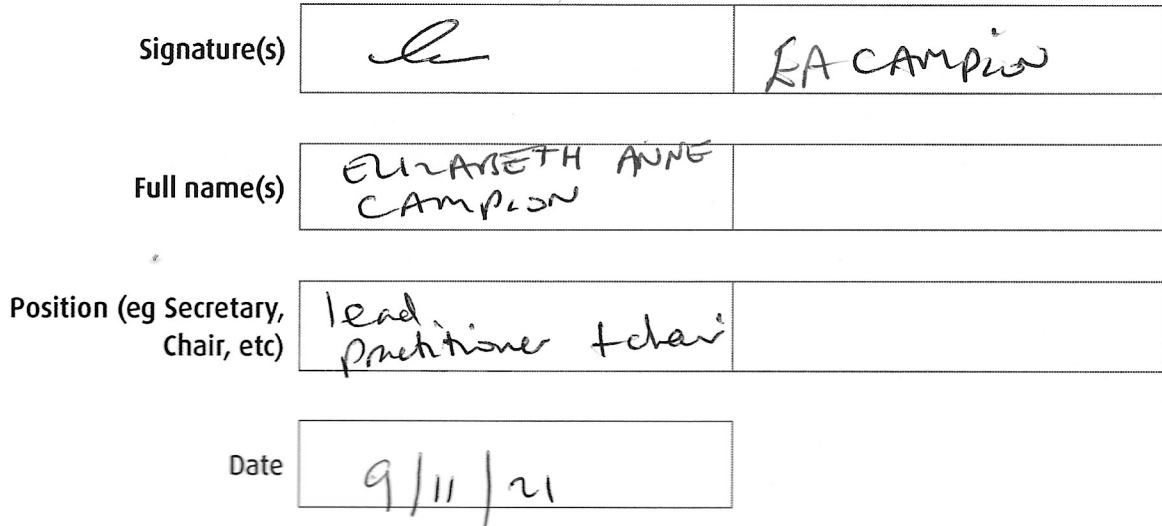 Signature(s)
EA CAMPION
Full name(s)
ELIZABETH ANNE
CAMPION
Position (eg Secretary,
Chair, etc)
lead
practitioner + chair
Date
9/11/21